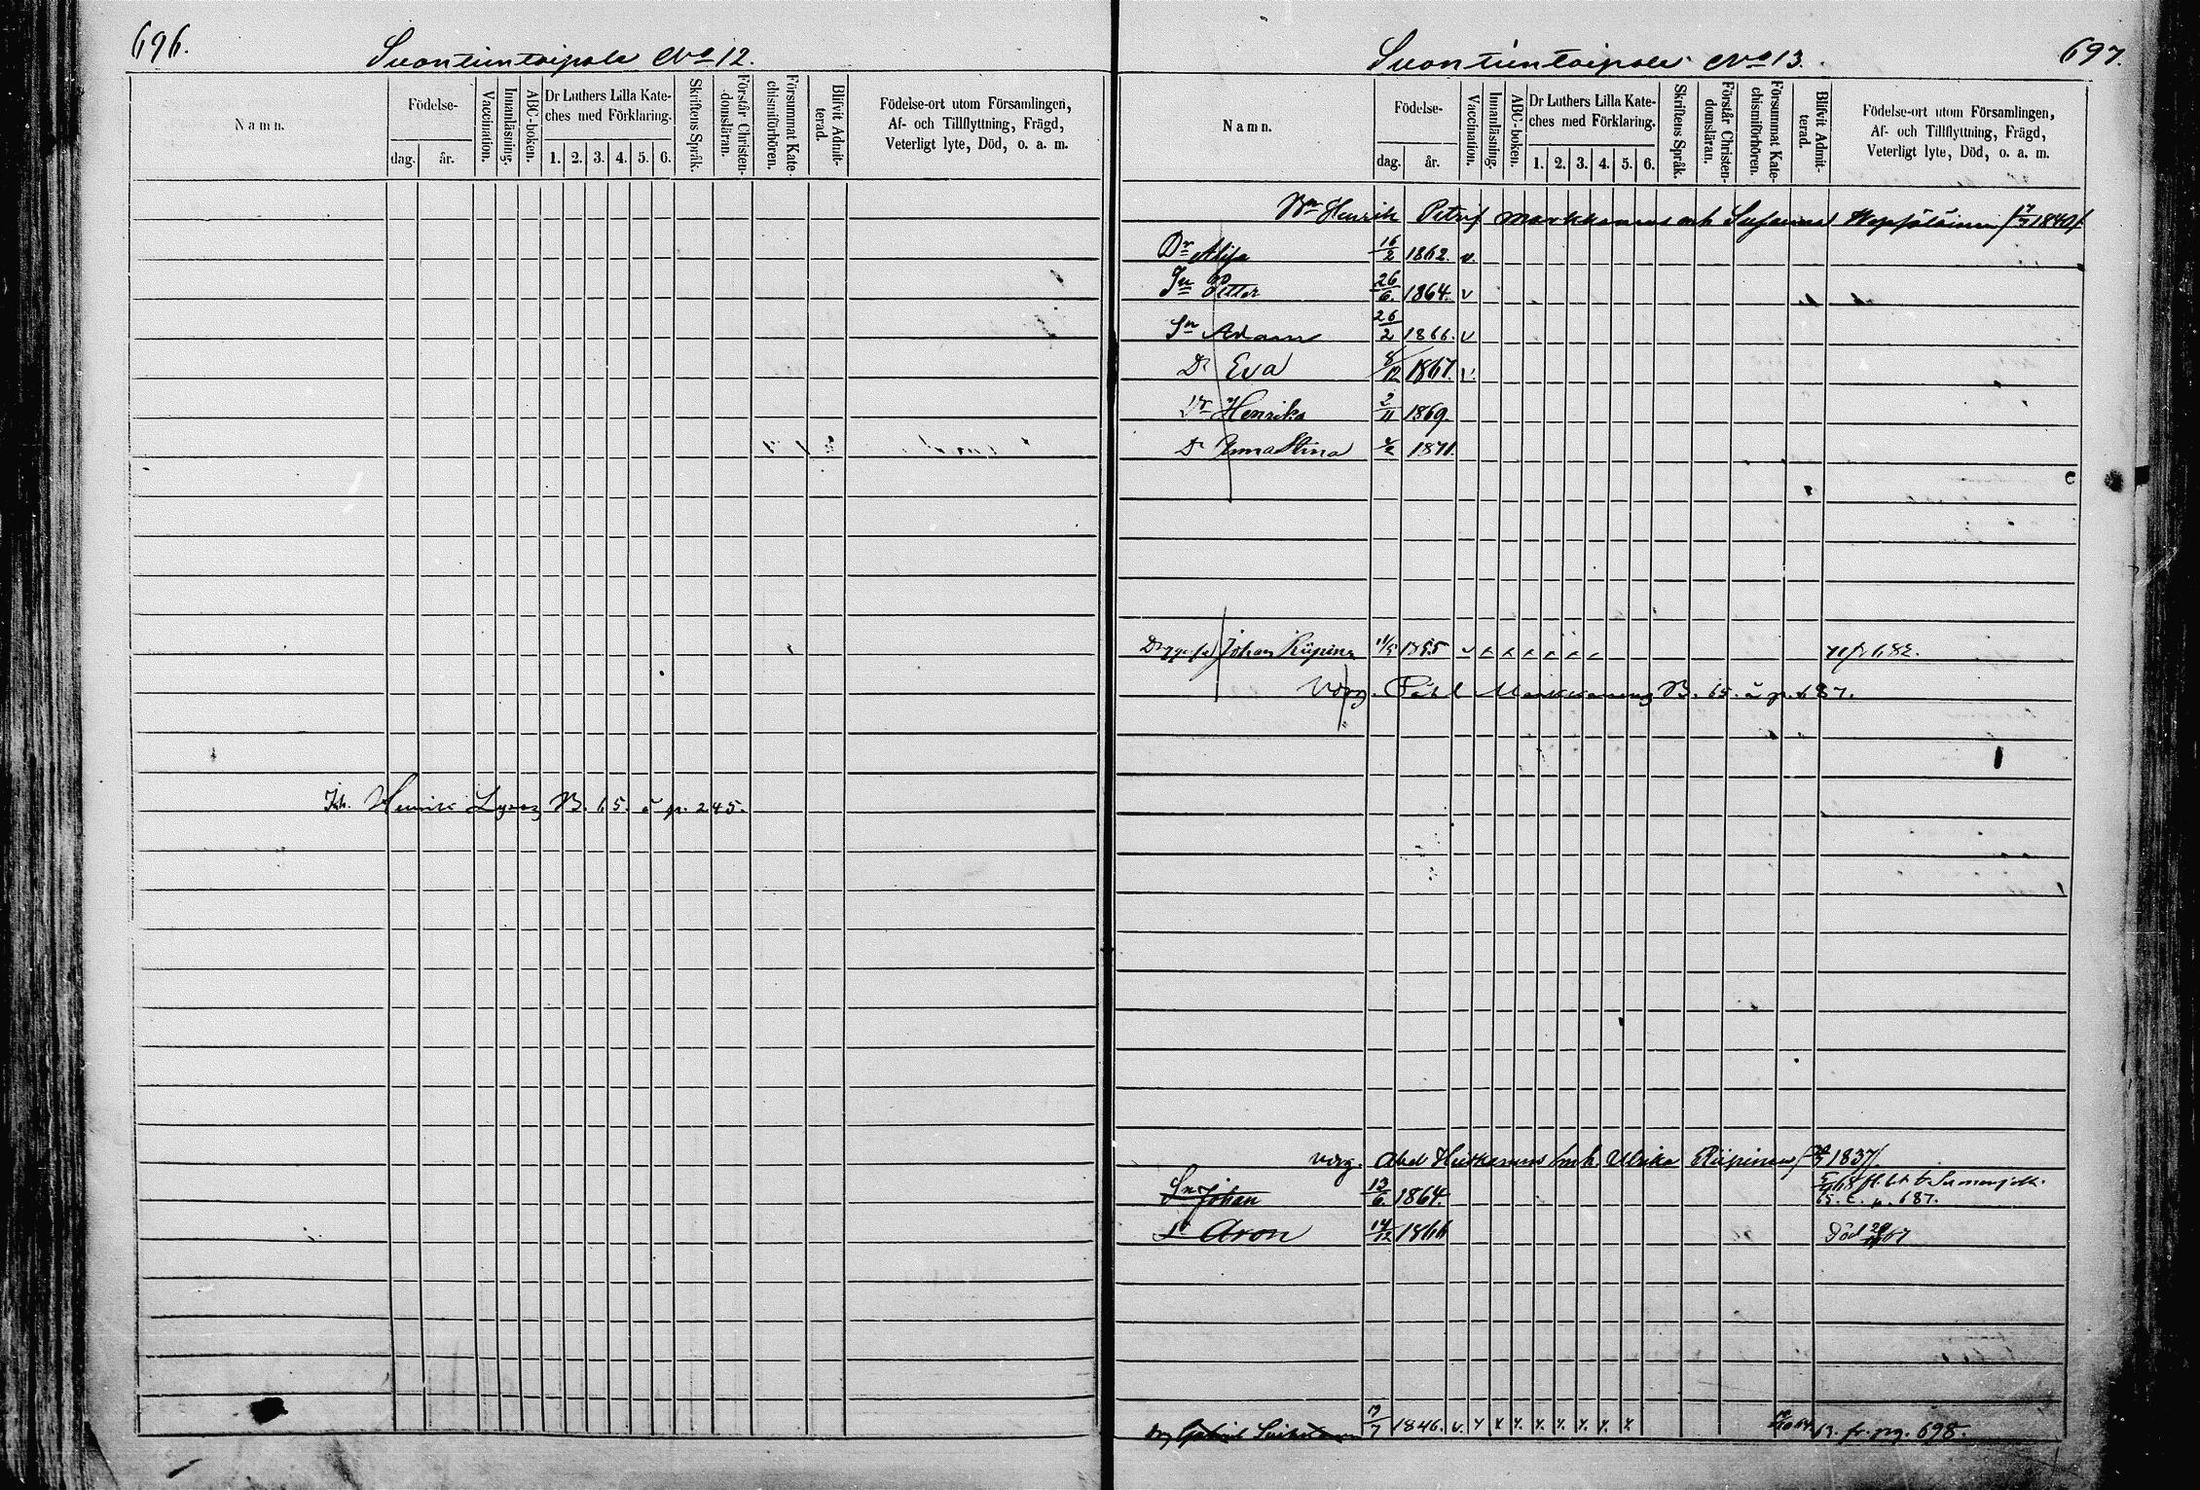 696.
Suontientaipale No 12.
Namn.
Födelse-
dag.
år.
Vaccination.
Innanläsning.
ABC-boken.
Dr Luthers Lilla Kate-
ches med Förklaring.
1. 2. 3. 4. 5. 6.
Skriftens Språk.
Förstår Christen-
domsläran.
Försummat Kate-
chismiförhören.
Blifvit Admit-
terad.
Födelse-ort utom Församlingen,
Af- och Tillflyttning, Frägd,
Veterligt lyte, Död, o. a. m.
Henrik B. 65. å p. 245.
Suontientaipale No 13.
697.
Namn.
Födelse-
dag.
år.
Vaccination.
Innanläsning.
ABC-boken.
Dr Luthers Lilla Kate-
ches med Förklaring.
1. 2. 3. 4. 5. 6.
Skriftens Språk.
Förstår Christen-
domsläran.
Försummat Kate-
chismiförhören.
Blifvit Admit-
terad.
Födelse-ort utom Församlingen,
Af- och Tillflyttning, Frägd,
Veterligt lyte, Död, o. a. m.
Henrik Markkanens och 1840
Dr 16/2 1862. v.
Petter 26/6. 1864. v
Sn Adam 26/2 1866. v
Dr Eva 8/12 1867. v.
Dr Henrika 2/11 1869.
Dr Anna Stina 1871.
Johan 11/5 1855 v
Markkanens B. 65. å p. 687.
Abel Ulrika Riipinen 1837
Sn Johan 13/6 1864.
65. p. 687.
Aron 14/12 1866 Död 67
Gabriel 7 1846. v. fr. pag. 698.